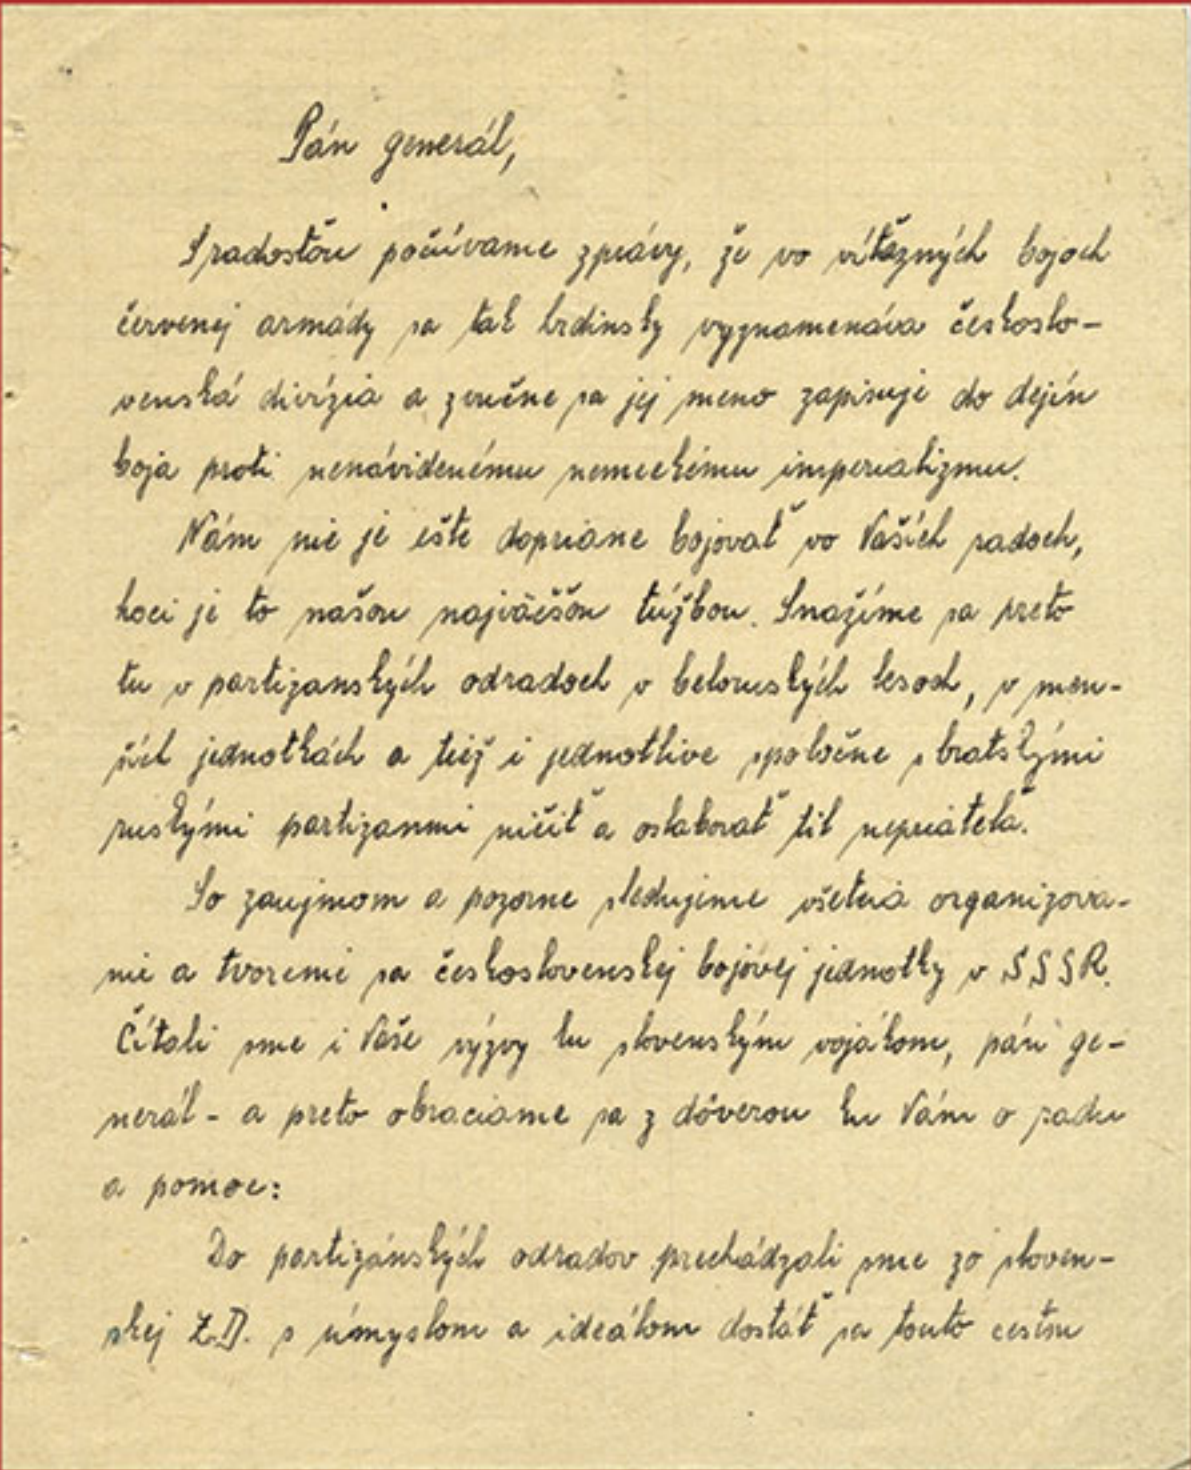 Pán generál,
S radosťou počúvame zprávy, že vo víťazných bojoch
červenej armády sa tak hrdinsky vyznamenáva českoslo-
venská divízia a zvučne sa jej meno zapisuje do dejín
boja proti nenávidenému nemeckému imperializmu.
Nám nie je ešte dopriane bojovať vo Vašich radoch,
hoci je to našou najväčšou túžbou. Snažíme sa preto
tu v partizanských odradoch v beloruských lesoch, v men-
ších jednotkách a tiež i jednotlive spoločne s bratskými
ruskými partizanmi ničiť a oslabovať til nepriateľa.
So zaujmom a pozorne sledujeme všetria organizova-
nie a tvorenie sa československej bojovej jednotky v S.S.S.R.
Čítali sme i Vaše výzvy ku slovenským vojákom, pán ge-
nerál - a preto obraciame sa z dôverou ku Vám o radu
a pomoc:
Do partizánských odradov prechádzali sme zo sloven-
skej Z.D. s úmyslom a ideálom dostať sa touto cestou